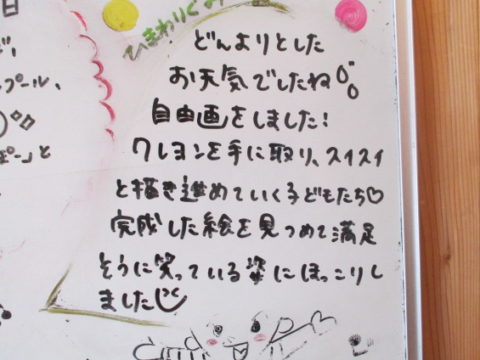 日
プール、
ぱー」と
ひまわりぐみ
どんよりとした
お天気でしたね
自由画をしました!
クレヨンを手に取り、スイスイ
と描き進めていく子どもたち♡
完成した絵を見つめて満足
そうに笑っている姿にほっこりし
ました